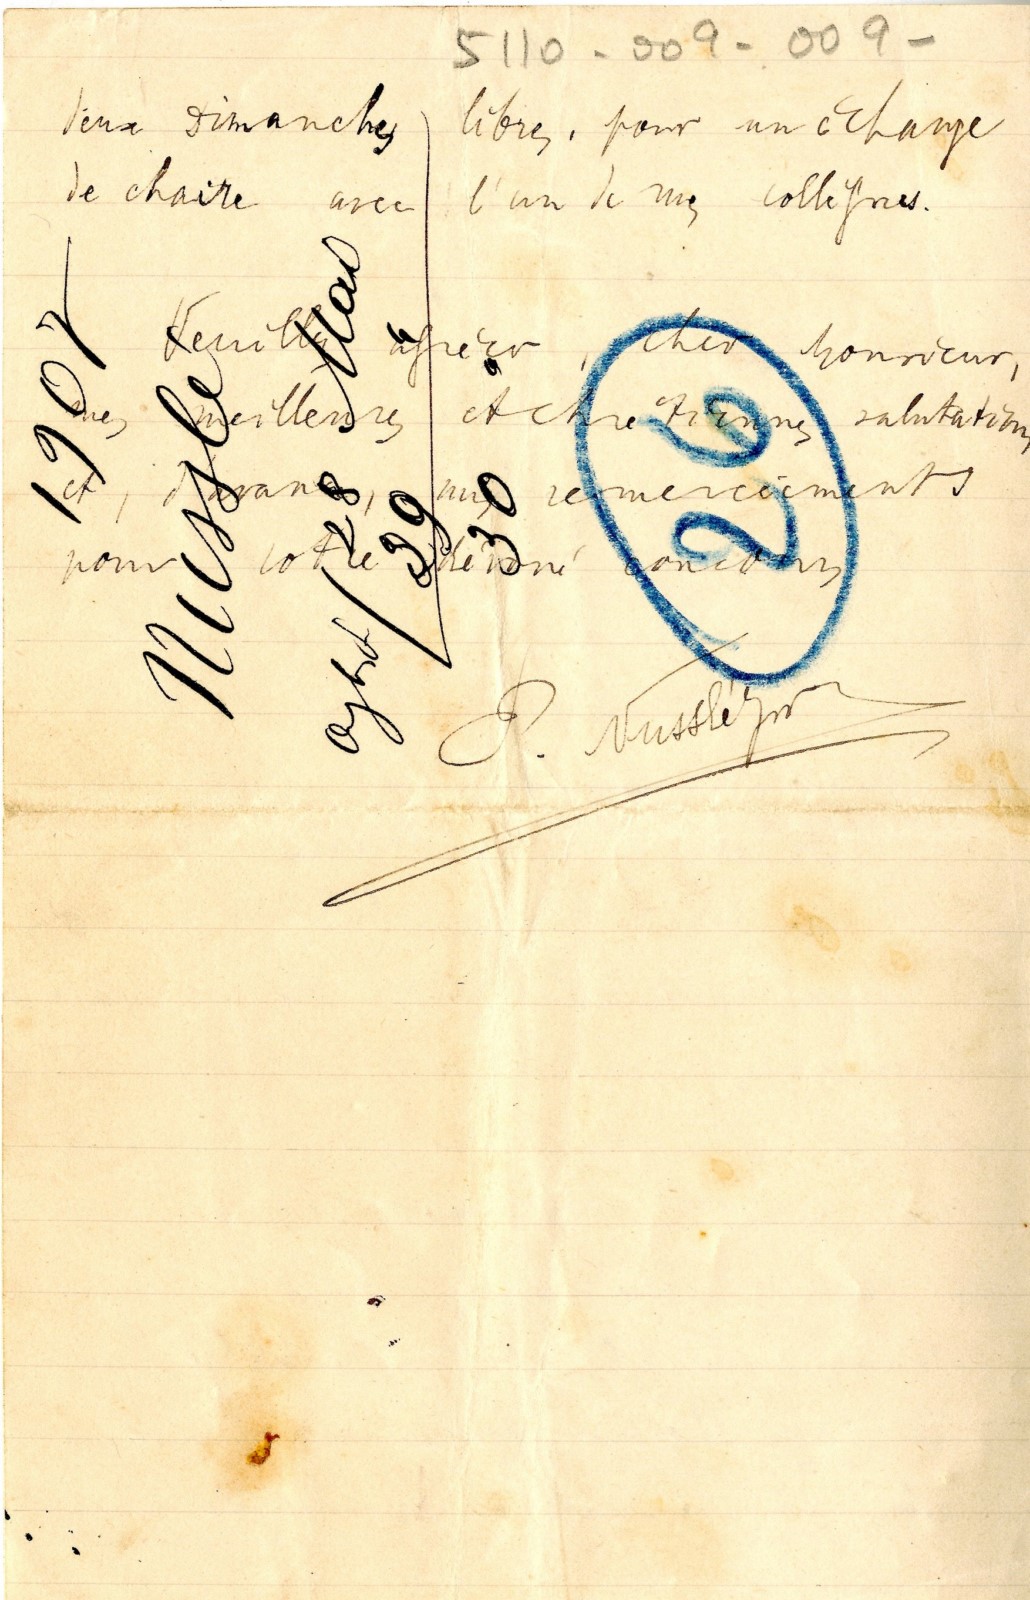 5110-009-009-
deux Dimanches libres, pour un échange
de chaire avec l'un de mes collègues.
Veuillez agréer, cher Monsieur,
mes meilleures et chrétiennes salutations
et, d'avance, mes remerciements
pour votre dévoué concours
P. Nusslé pr
26
190
Nusslé
28 Mai
29 "
30 "